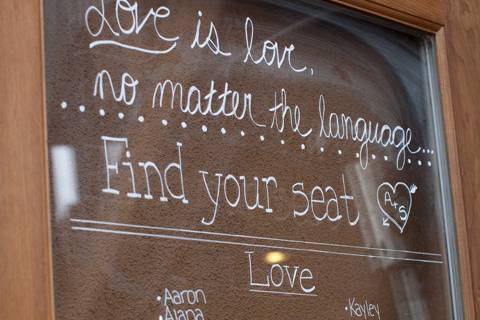 Love is love,
no matter the language...
Find your seat A+S
Love
• Aaron • Kayley
• Alana